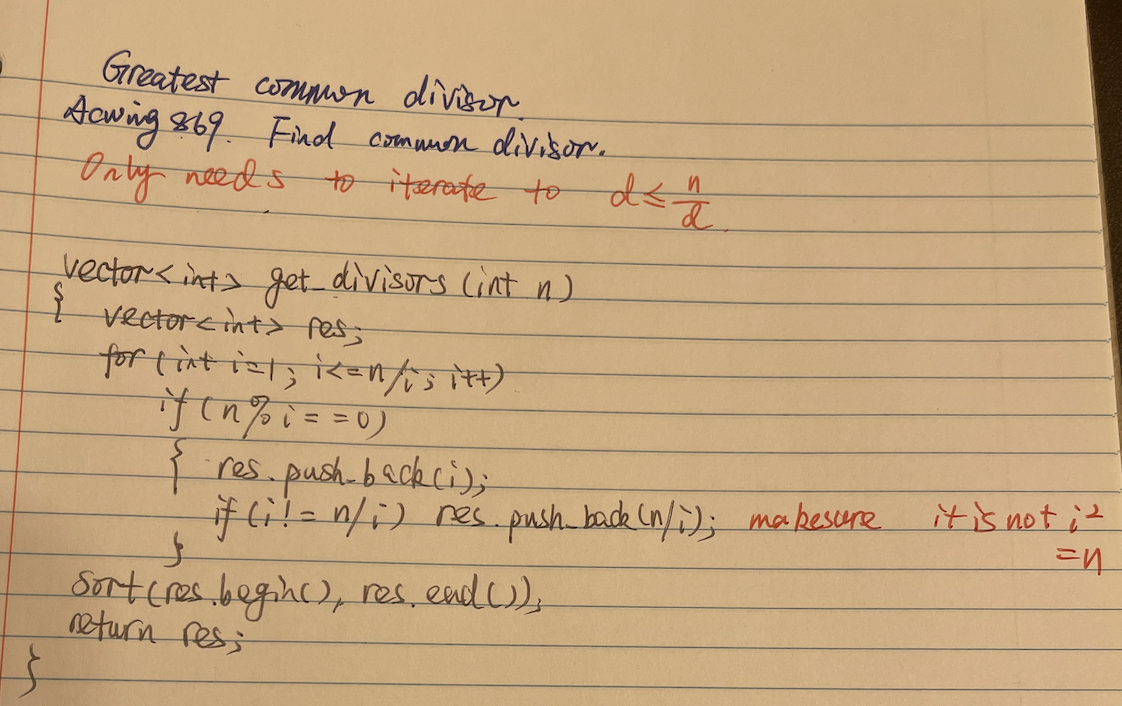 Greatest common divisor.
Acwing 869. Find common divisor.
Only needs to iterate to d≤n/d.
vector<int> get_divisors (int n)
{ vector<int> res;
for (int i=1; i<=n/i; i++)
if (n%i==0)
{ res.push_back(i);
if (i!=n/i) res.push_back(n/i); makesure it is not i²
=n
}
sort(res.begin(), res.end());
return res;
}